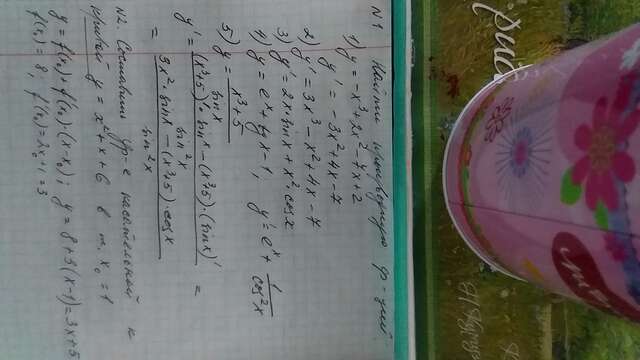 N1 Найти производную ф-ций
1) y = -x³+2x²-7x+2
y' = -3x²+4x-7
2) y' = 3x³-x²+4x-7
3) y' = 2x·sin x + x²·cos x
4) y = eˣ + tg x - 1; y' = eˣ + 1/cos²x
5) y = x³+5/sin x
y' = (x³+5)'·sin x - (x³+5)·(sin x)'/sin²x =
= 3x²·sin x - (x³+5)·cos x/sin²x
N2. Составить ур-е касательной к
кривой y = x²+x+6 в т. x₀ = 1
y = f(x₀)+f'(x₀)·(x-x₀); y = 8+3(x-1) = 3x+5
f(x₀) = 8; f'(x₀) = 2x₀+1 = 3